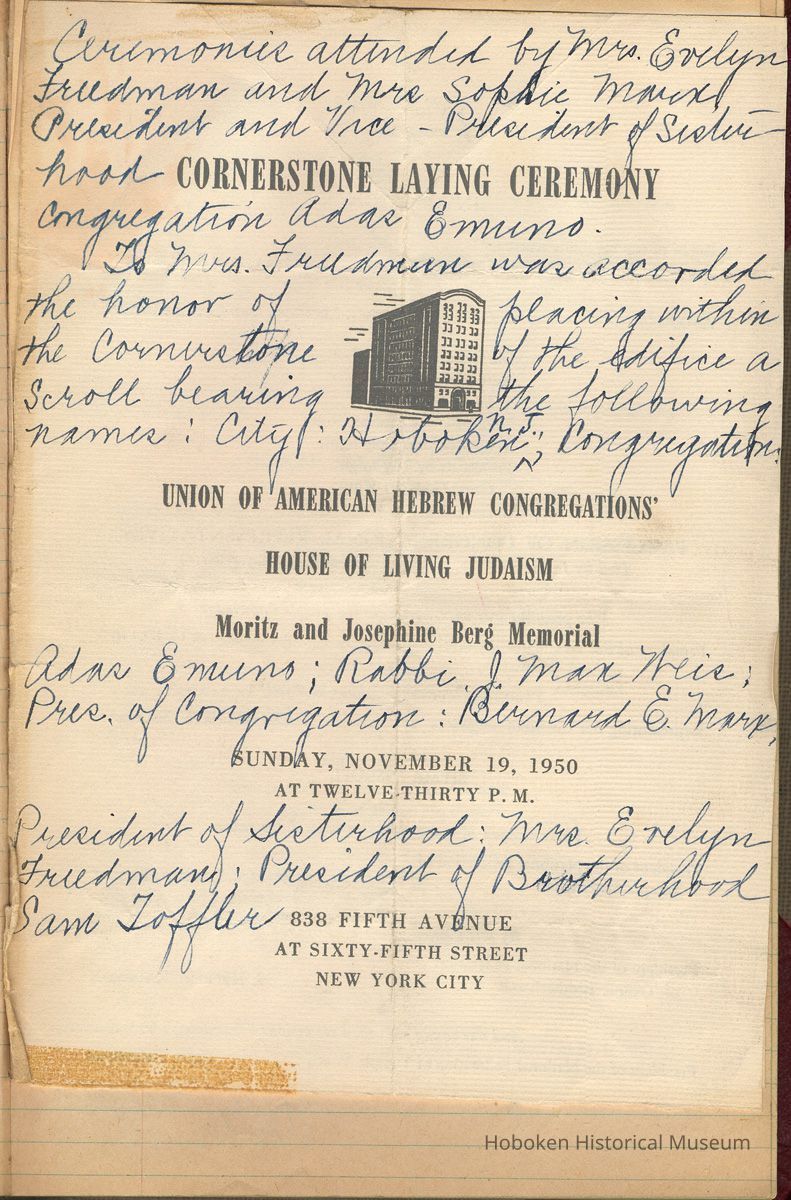 Ceremonies attended by Mrs. Evelyn
Friedman and Mrs Sophie Marx,
President and Vice - President of Sister-
hood CORNERSTONE LAYING CEREMONY
Congregation Adas Emuno.
To Mrs. Friedman was accorded
the honor of placing within
the Cornerstone of the edifice a
Scroll bearing the following
names: City: Hoboken, N.J.; Congregation:
UNION OF AMERICAN HEBREW CONGREGATIONS'
HOUSE OF LIVING JUDAISM
Moritz and Josephine Berg Memorial
Adas Emuno; Rabbi J Max Weis;
Pres. of Congregation: Bernard E. Marx,
SUNDAY, NOVEMBER 19, 1950
AT TWELVE-THIRTY P. M.
President of Sisterhood: Mrs. Evelyn
Friedman; President of Brotherhood
Sam Toffler 838 FIFTH AVENUE
AT SIXTY-FIFTH STREET
NEW YORK CITY
Hoboken Historical Museum